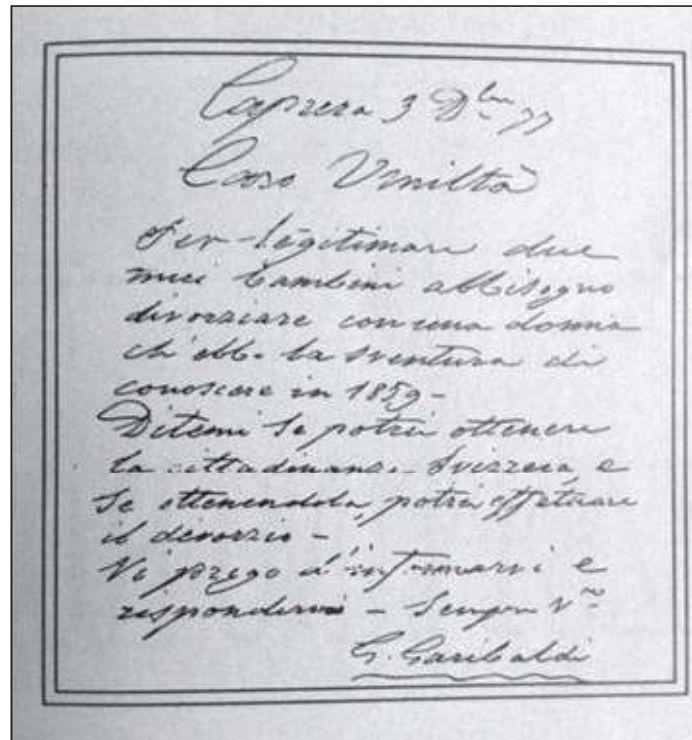 Caprera 3 Dbre 77
Caro Vimiltà
Per legitimare due
miei bambini abbisogno
divorziare con una donna
ch'ebbi la sventura di
conoscere in 1859 -
Ditemi se potrei ottenere
la cittadinanza Svizzera, e
se ottenendola, potrei effetuare
il divorzio -
Vi prego d'informarvi e
rispondermi - Sempre Vro
G. Garibaldi